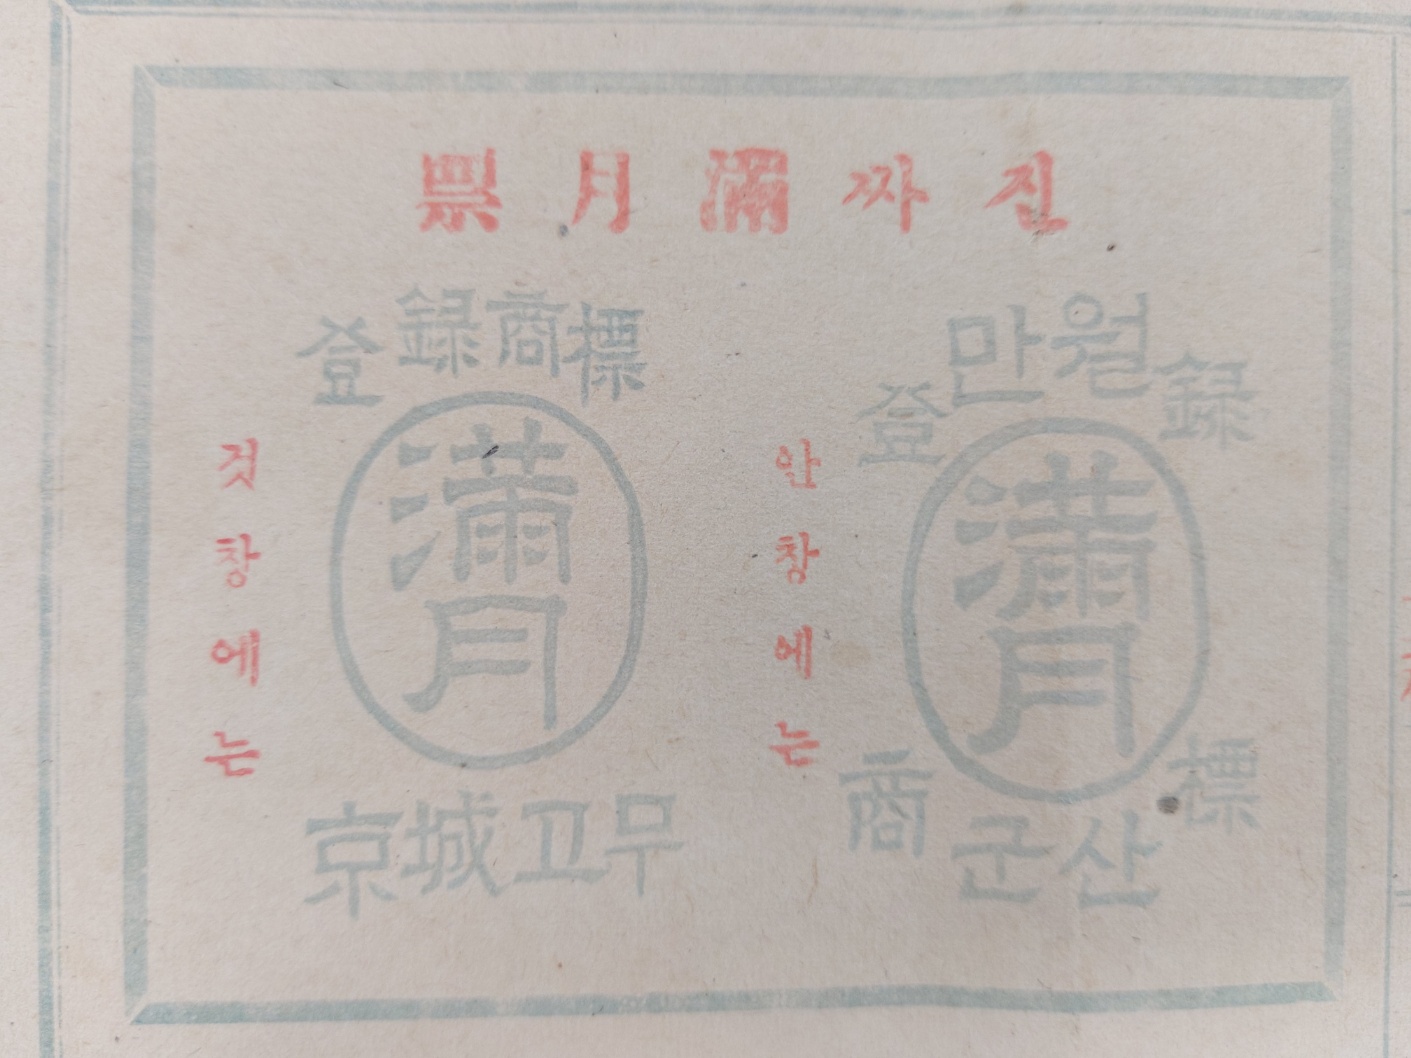 진짜滿月票
안창에는
만월
登録
滿月
商標
군산
것창에는
登録商標
滿月
京城고무